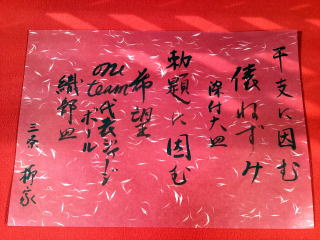 干支に因む
俵ねずみ
染付大皿
勅題に因む
希望
one team代表ジャージ
ボール
織部皿
三京 柳家